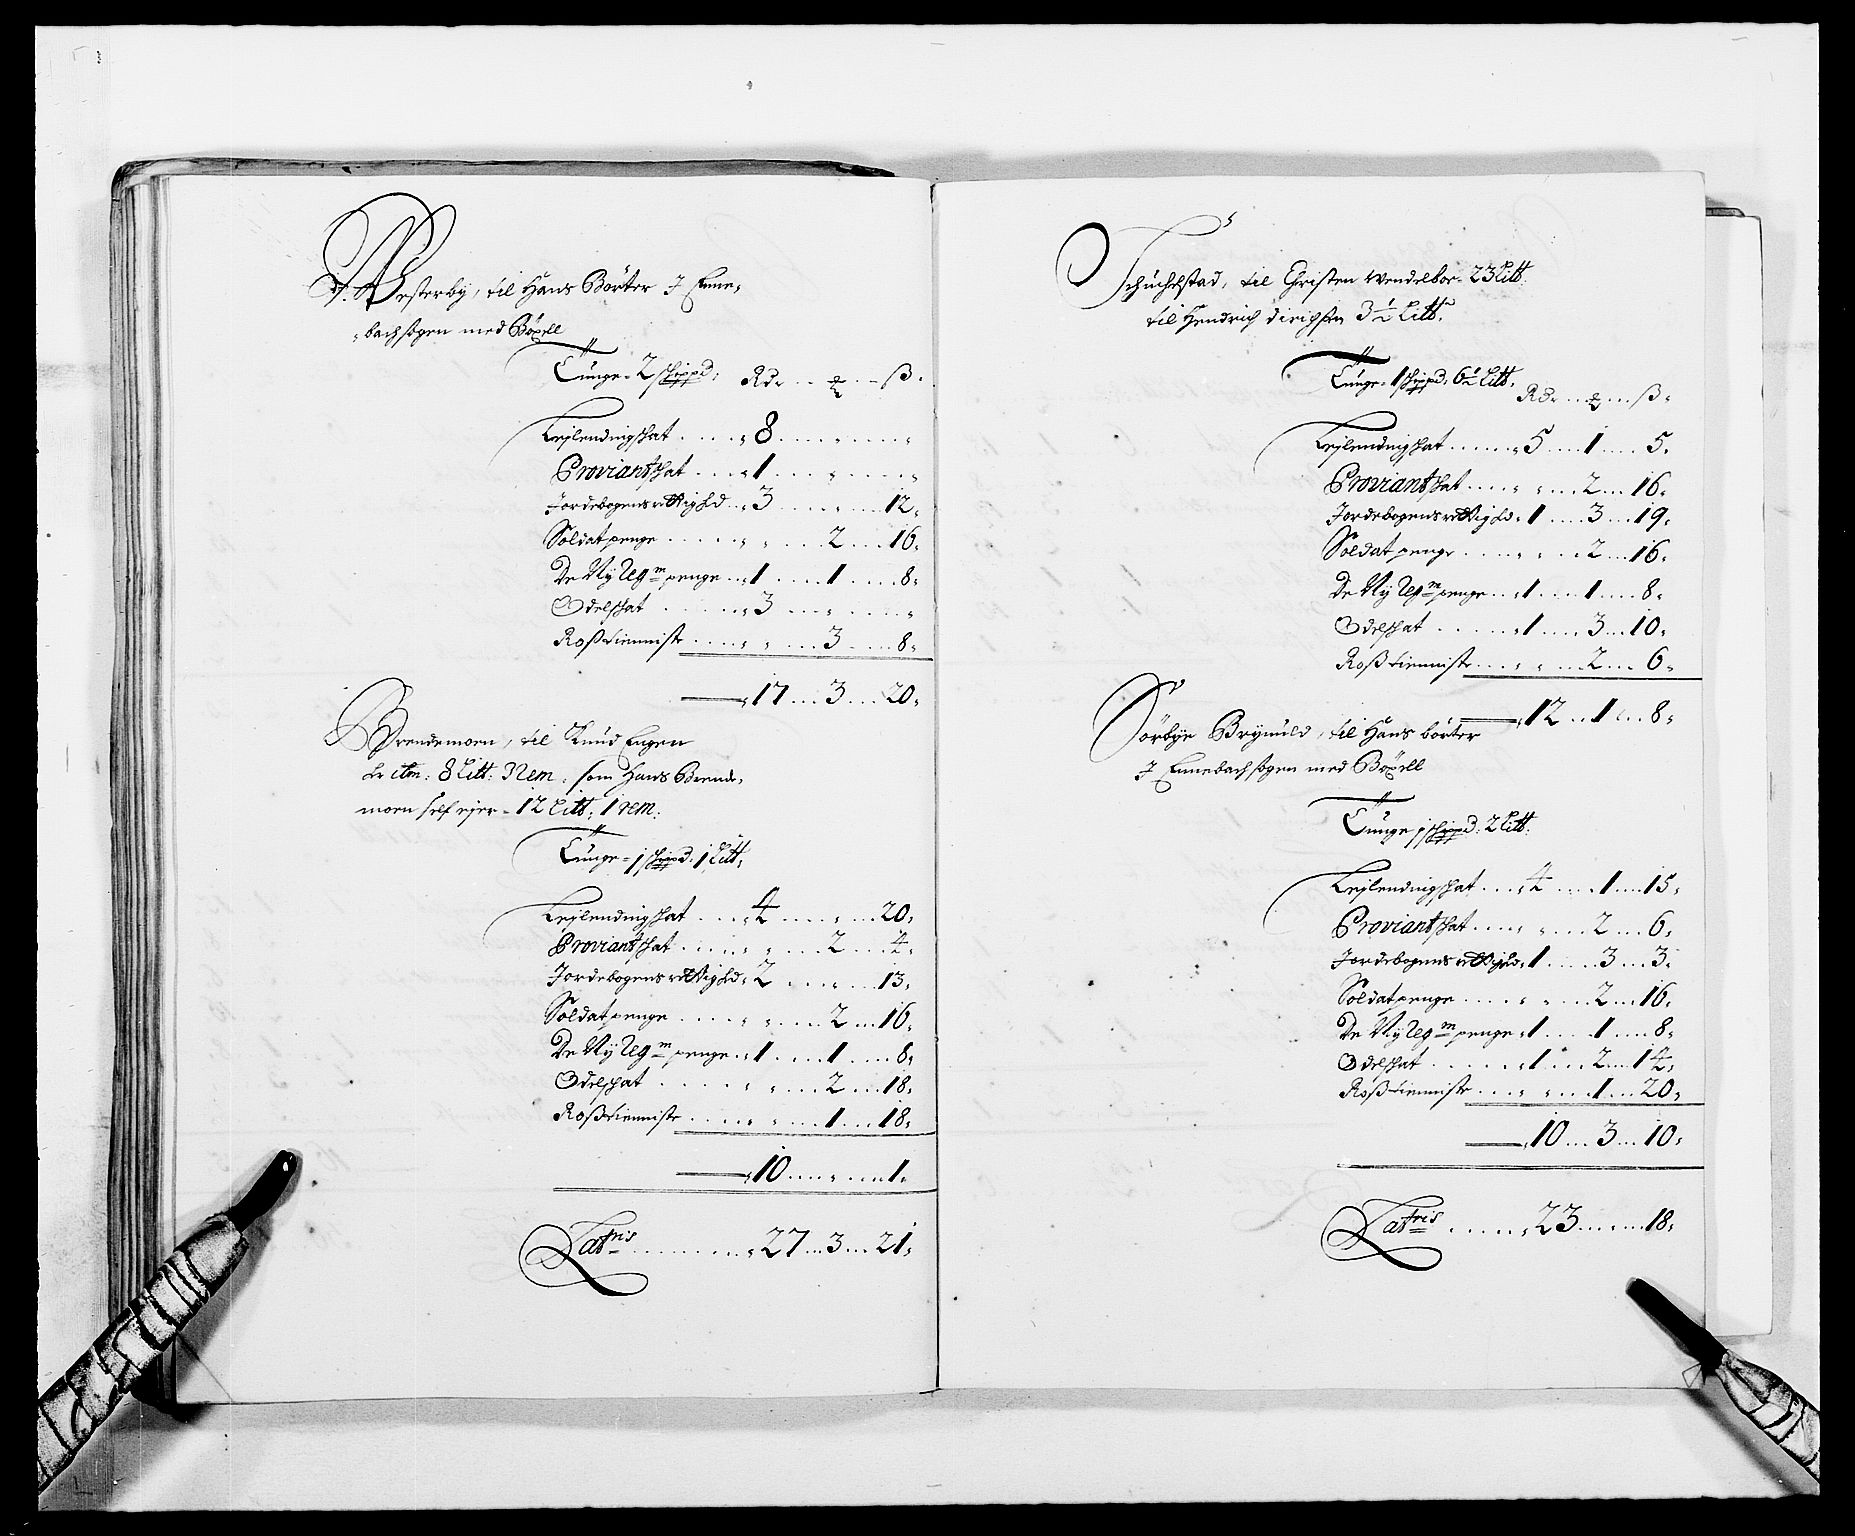 Westerby, til Hans Börter J Enne,
,bach sogen med Böxell
Tünge, 2 schippd, Rdr ß
Leylendingschat 8
Proviantschat 1
Jordebogens rettighd 3 12
Soldat penge 2 16
De Ny Regm penge 1 1 8
Odelschat 3
Roßtienniste 3 8
17 3 20
Brendemoen, til Knud Engen
Lr itm: 8 Litt: 3 rem, som Hans Brende,
moen self ejer, 12 Litt, 1 rem.
Tünge, j schippd, j Litt,
Leylendingschat 4 20
Proviantschat 2 4
Jordebogens rettighd 2 13
Soldat penge 2 16
De Ny Regm penge 1 1 8
Odelschat 2 18
Roßtienniste 1 18
10 1
Latris 27 3 21
Schüchstad, til Christen Wendelboe, 23 Litt
til Hendrich Dirichsen 3½ Litt.
Tünge, 1 schippd, 6½ Litt, Rdr ß
Leylendingschat 5 1 5
Proviantschat 2 16
Jordebogens rettighd 1 3 19
Soldat penge 2 16
De Ny Regm penge 1 1 8
Odelschat 1 3 10
Roßtienniste 2 6
12 1 8
Sörbye Brynüld, til Hans börter
J Ennebach sogen med Böxell
Tünge j schippd, 2 Litt.
Leylendingschat 4 1 15
Proviantschat 2 6
Jordebogens rettighd 1 3 3
Soldat penge 2 16
De Ny Regm penge 1 1 8
Odelschat 1 2 14
Roßtienniste 1 20
10 3 10
Latris 23 18